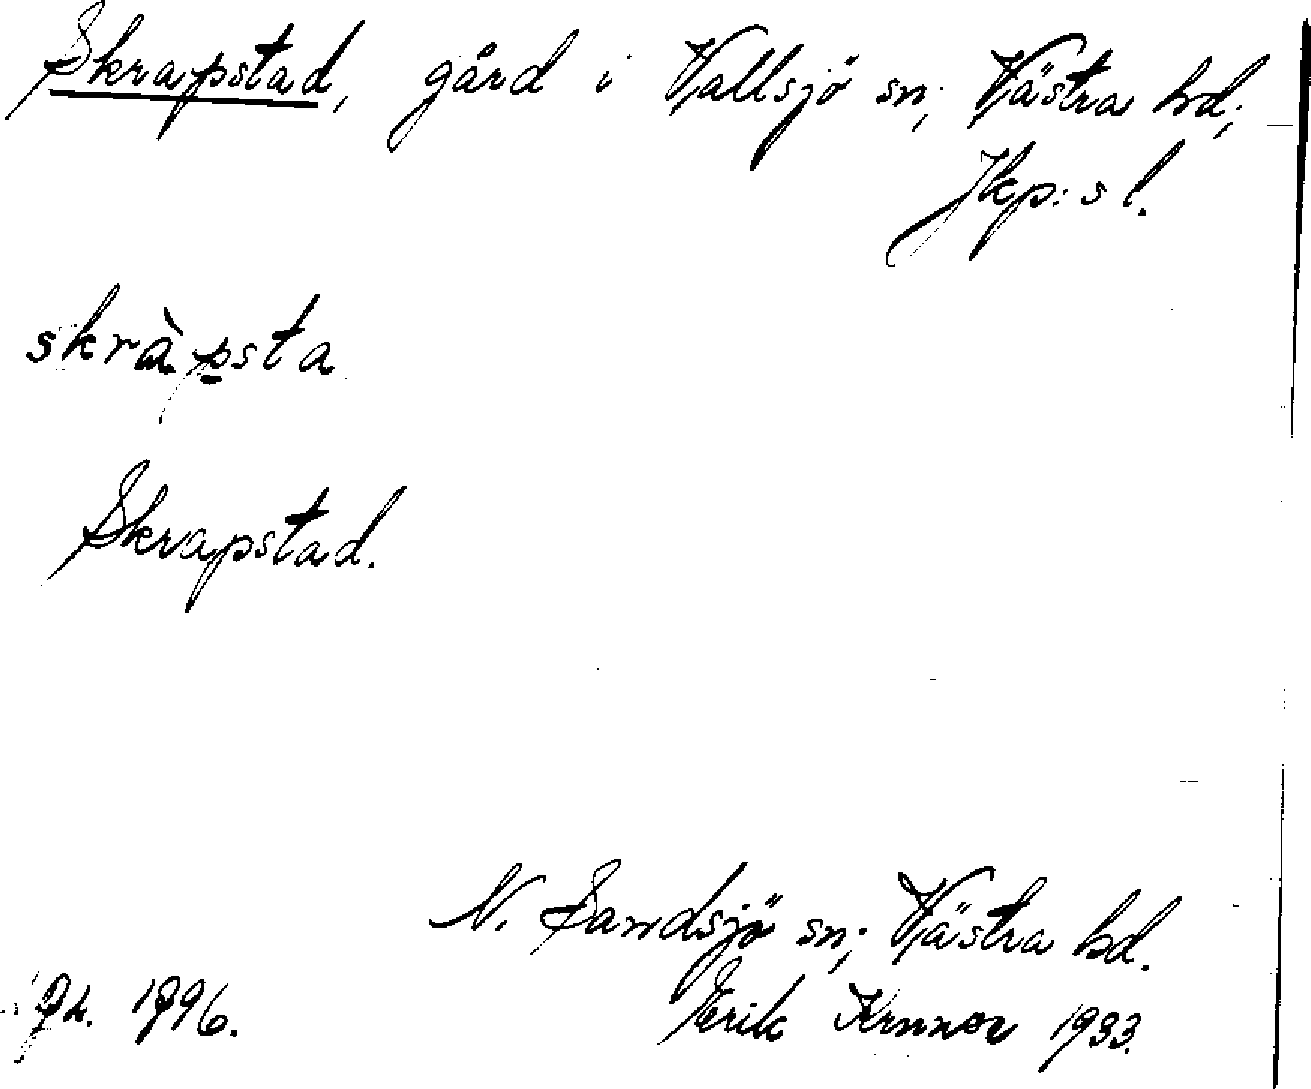 Skrapstad, gård i Vallsjö sn; Västra hd;
Jkp:s l.
skràpsta
Skrapstad.
N. Sandsjö sn; Västra hd.
Erik 1933.
1996.